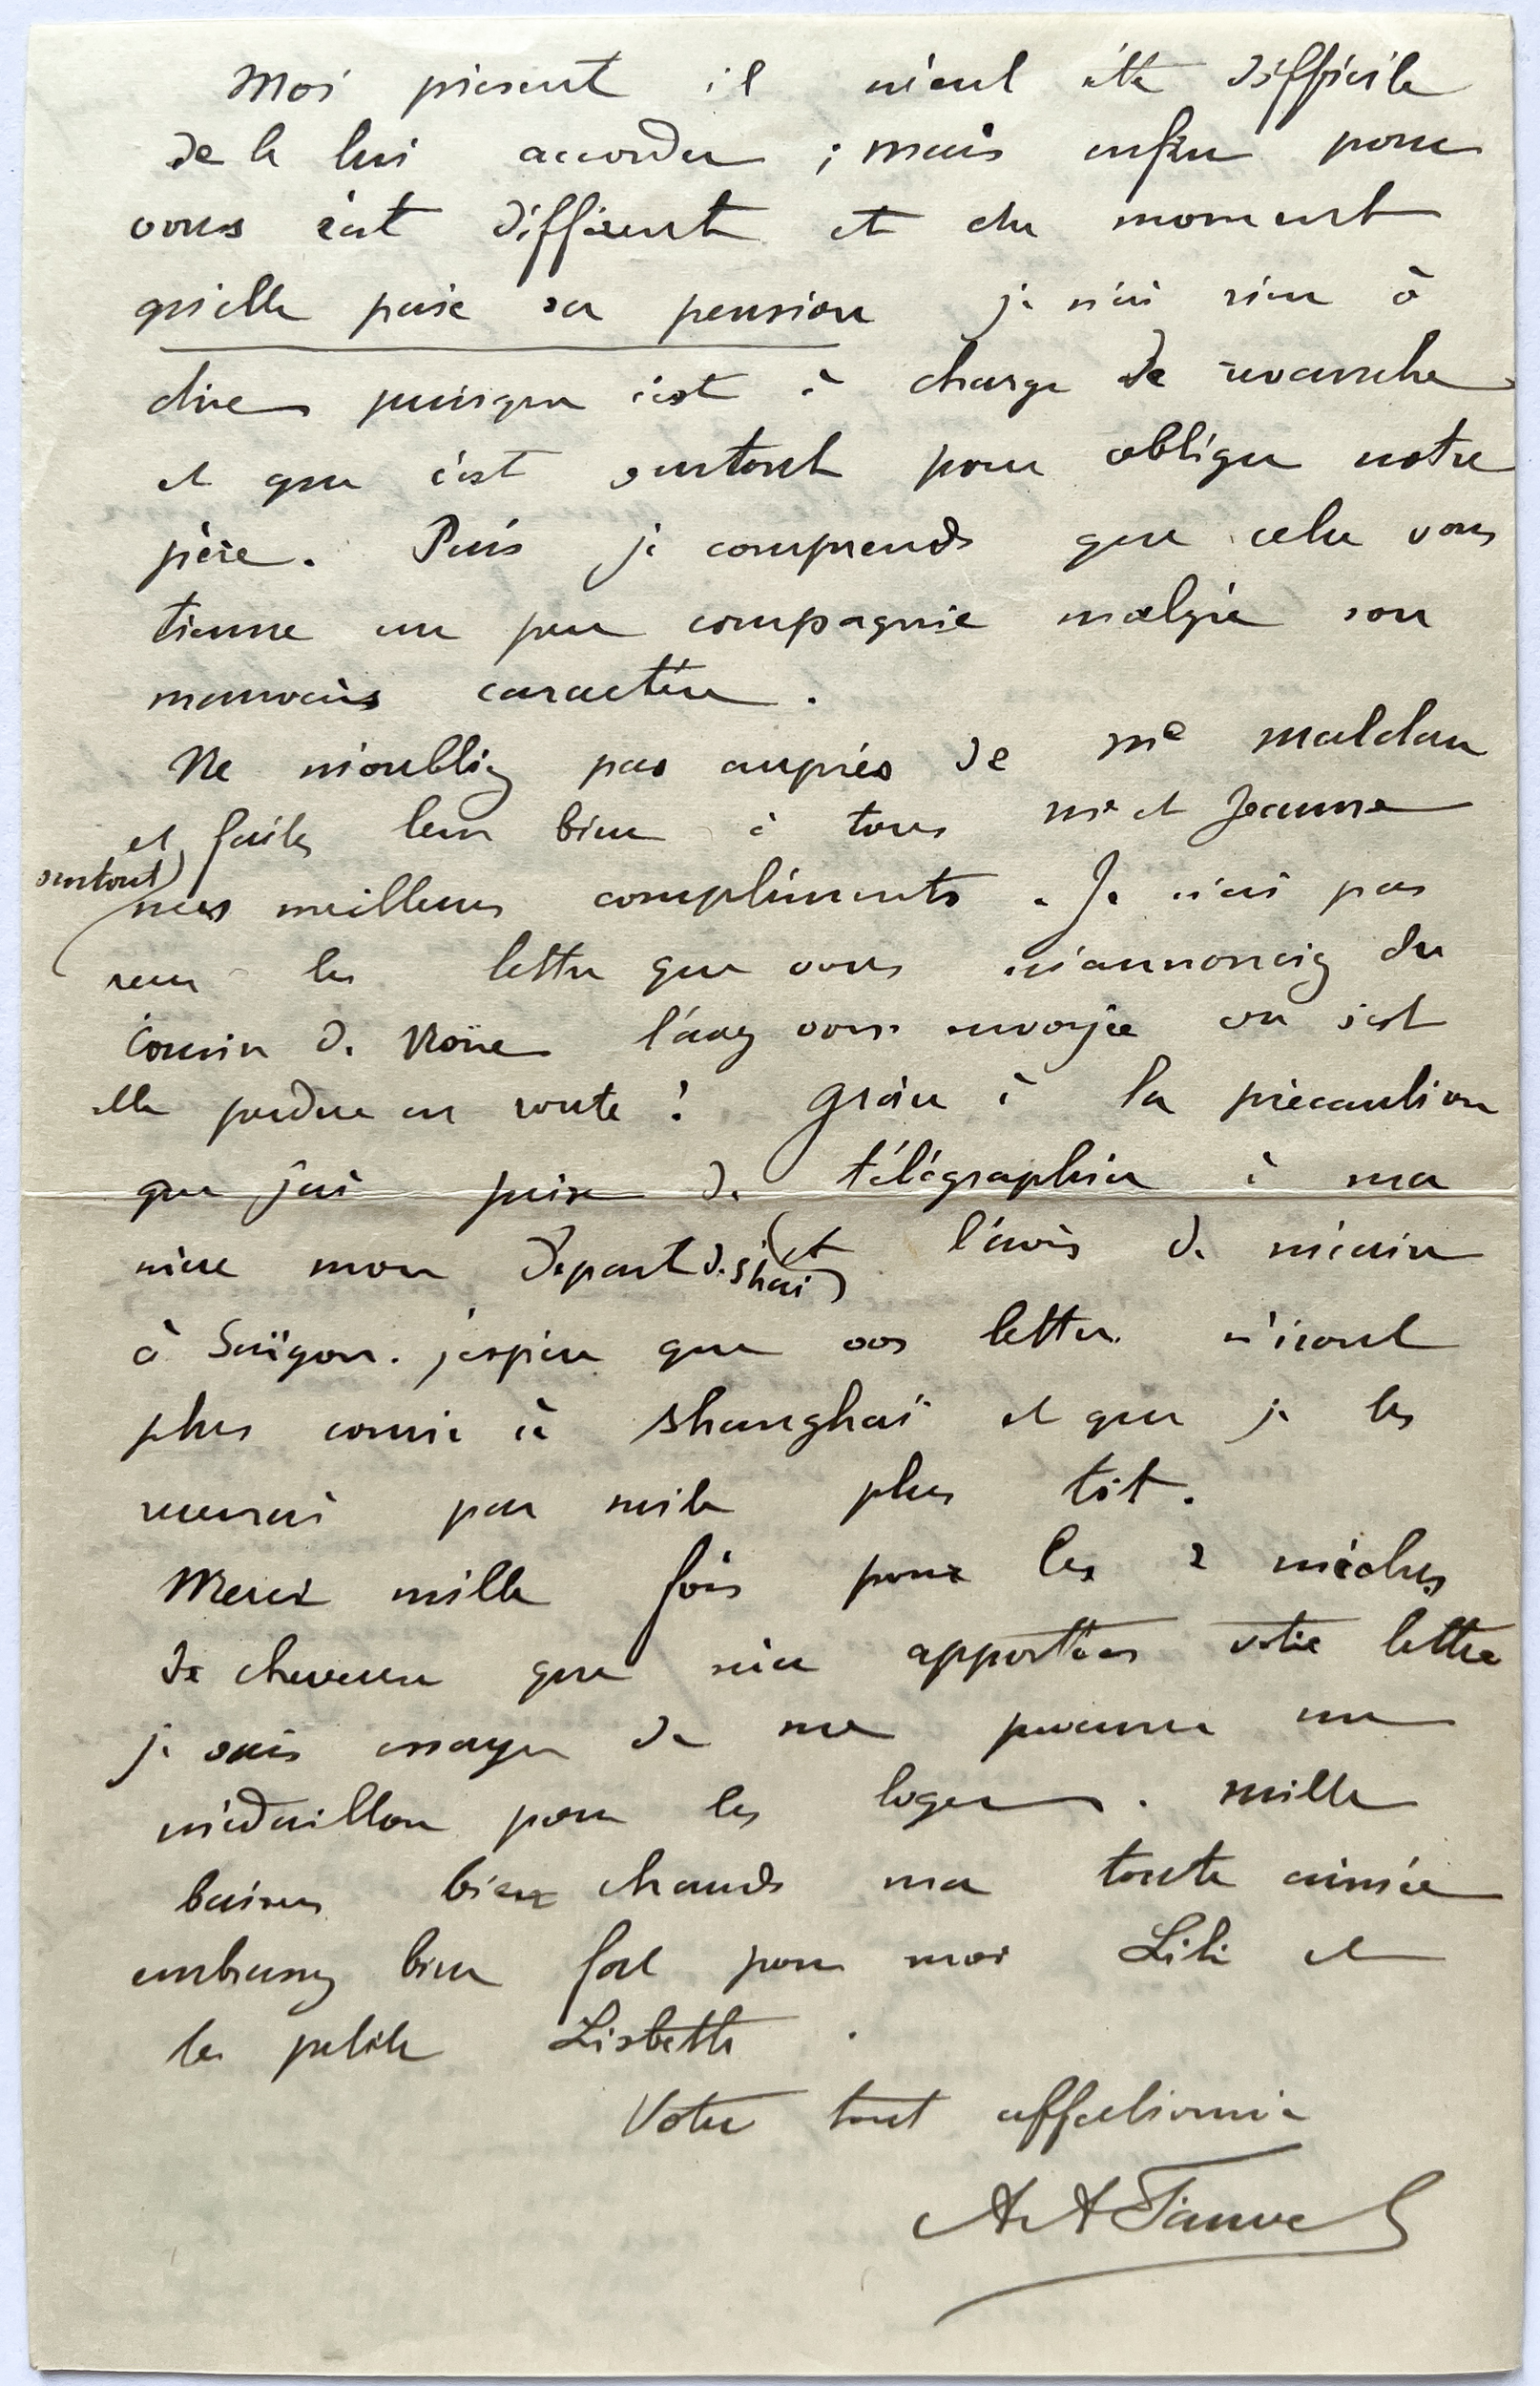 Moi présent il m'eut été difficile
de le lui accorder ; mais enfin pour
vous c'est différent et du moment
qu'elle paie sa pension je n'ai rien à
dire puisque c'est à charge de revanche
et que c'est surtout pour obliger notre
père. Puis je comprends que cela vous
tienne un peu compagnie malgré son
mauvais caractère.
Ne m'oubliez pas auprès de Me Maldan
et faites leur bien à tous Me et Jeanne
(surtout) mes meilleurs compliments. Je n'ai pas
reçu la lettre que vous m'annonciez du
Cousin de l'avez vous envoyée ou s'est
elle perdue en route ? Grâce à la précaution
que j'ai prise de télégraphier à ma
mère mon départ de Shai (et l'avis de m'écrire
à Saïgon. j'espère que vos lettres n'iront
plus courir à Shanghaï et que je les
recevrai par suite plus tôt.
Merci mille fois pour les 2 mèches
de cheveux que m'a apportées votre lettre
je vais essayer de me procurer un
médaillon pour les loger. Mille
baisers bien chauds ma toute aimée
embrassez bien fort pour moi Lili et
la petite Lisbeth.
Votre tout affectionné
AA Fauvel